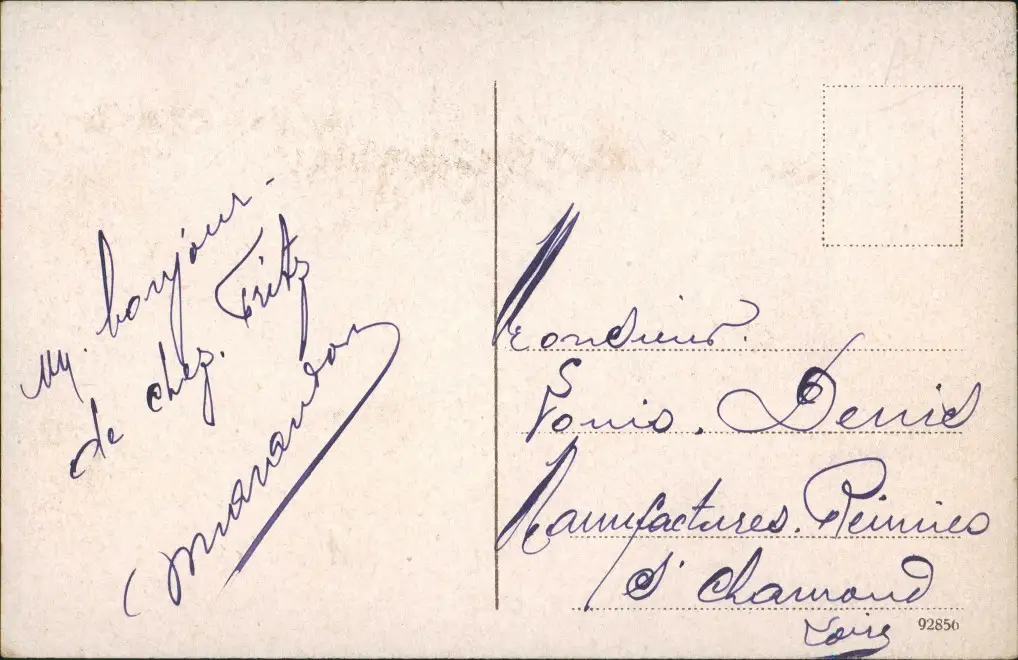 un bonjour
de chez Fritz
Monsieur
Louis Denis
Manufactures Réunies
St Chamond
Loire
92856